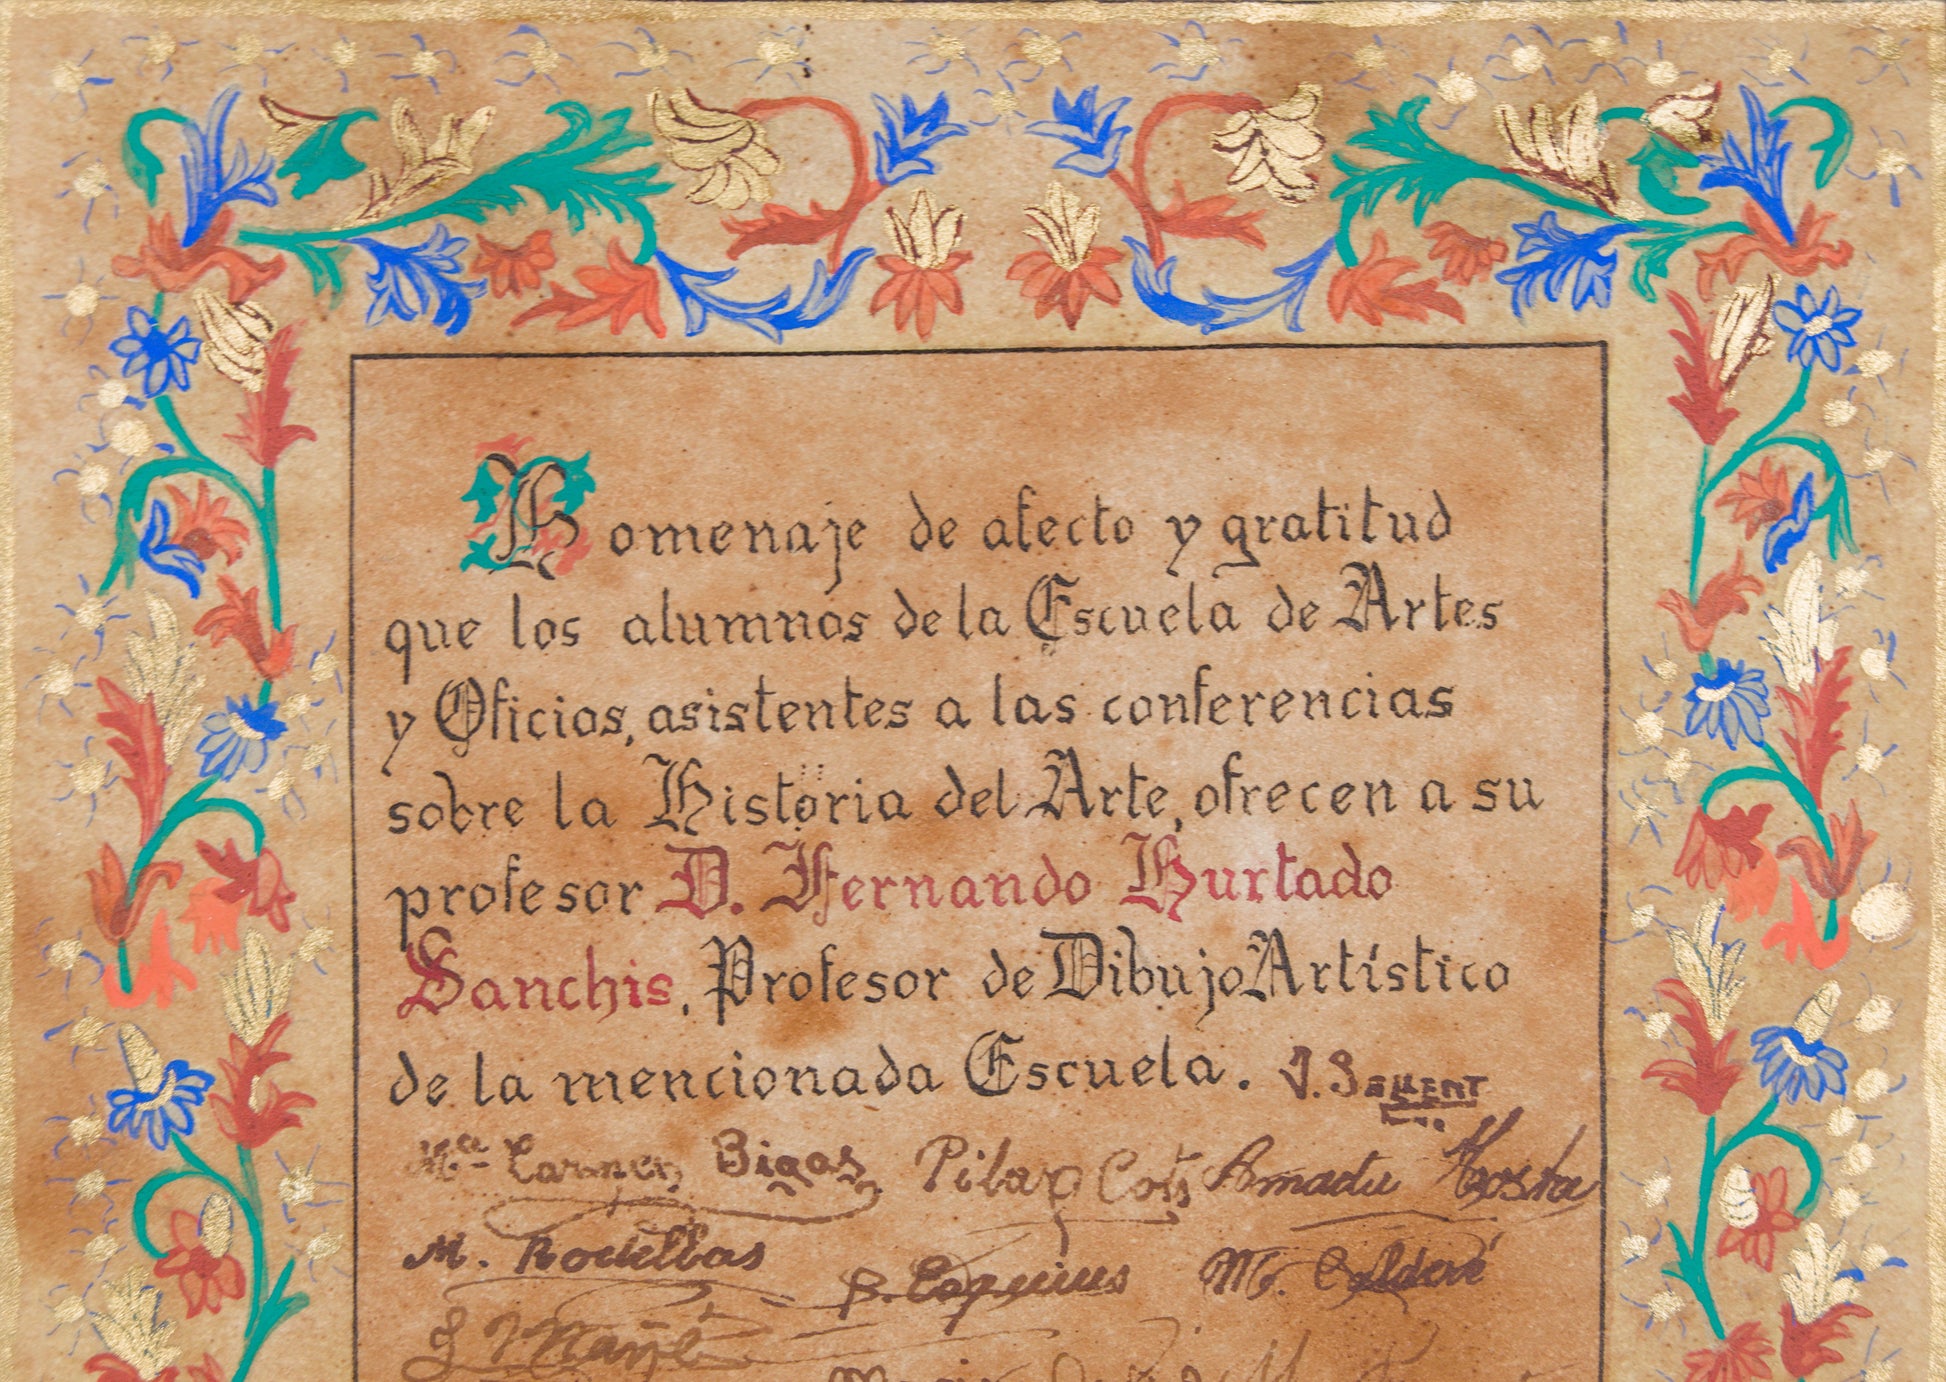 Homenaje de afecto y gratitud
que los alumnos de la Escuela de Artes
y Oficios, asistentes a las conferencias
sobre la Historia del Arte, ofrecen a su
profesor D. Fernando Hurtado
Sanchis, Profesor de Dibujo Artístico
de la mencionada Escuela. J. SELLENT
Mª Carmen Bigas Pilar Cots Amadeu
M. Rodellas M. Calderé